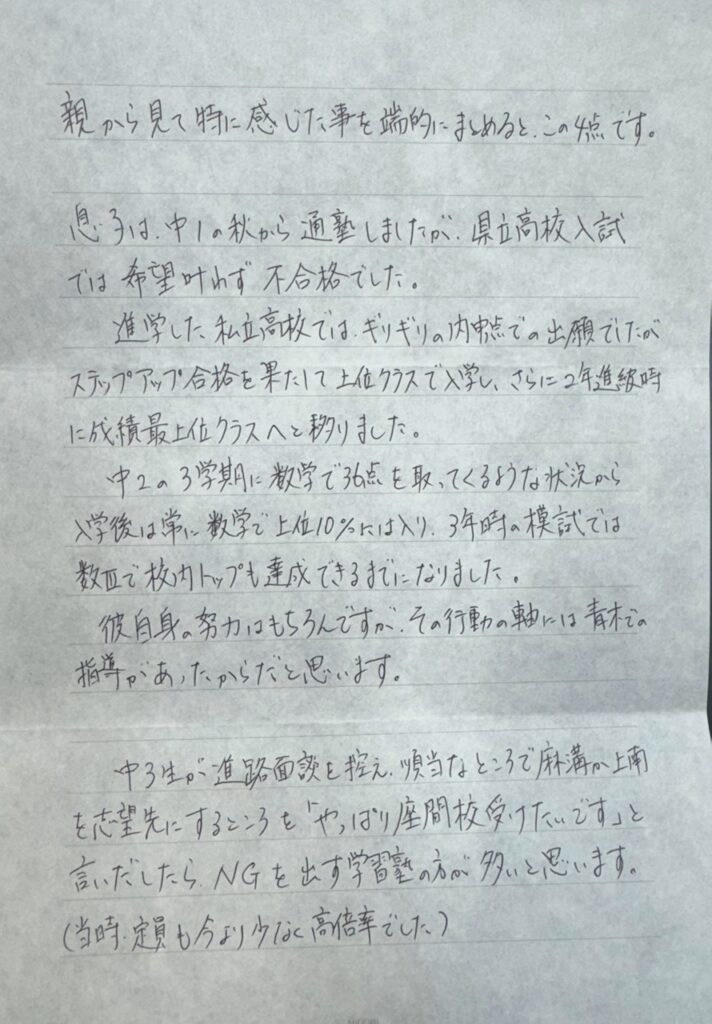 親から見て特に感じた事を端的にまとめると、この4点です。
息子は、中1の秋から通塾しましたが、県立高校入試
では希望叶わず不合格でした。
進学した私立高校では、ギリギリの内申点での出願でしたが
ステップアップ合格を果たして上位クラスで入学し、さらに2年進級時
に成績最上位クラスへと移りました。
中2の3学期に数学で36点を取ってくるような状況から
入学後は常に数学で上位10%には入り、3年時の模試では
数Ⅲで校内トップも達成できるまでになりました。
彼自身の努力はもちろんですが、その行動の軸には青木での
指導があったからだと思います。
中3生が進路面談を控え、順当なところで麻溝か上南
を志望先にするところを「やっぱり座間校受けたいです」と
言いだしたら、NGを出す学習塾の方が多いと思います。
(当時、定員も今より少なく高倍率でした)